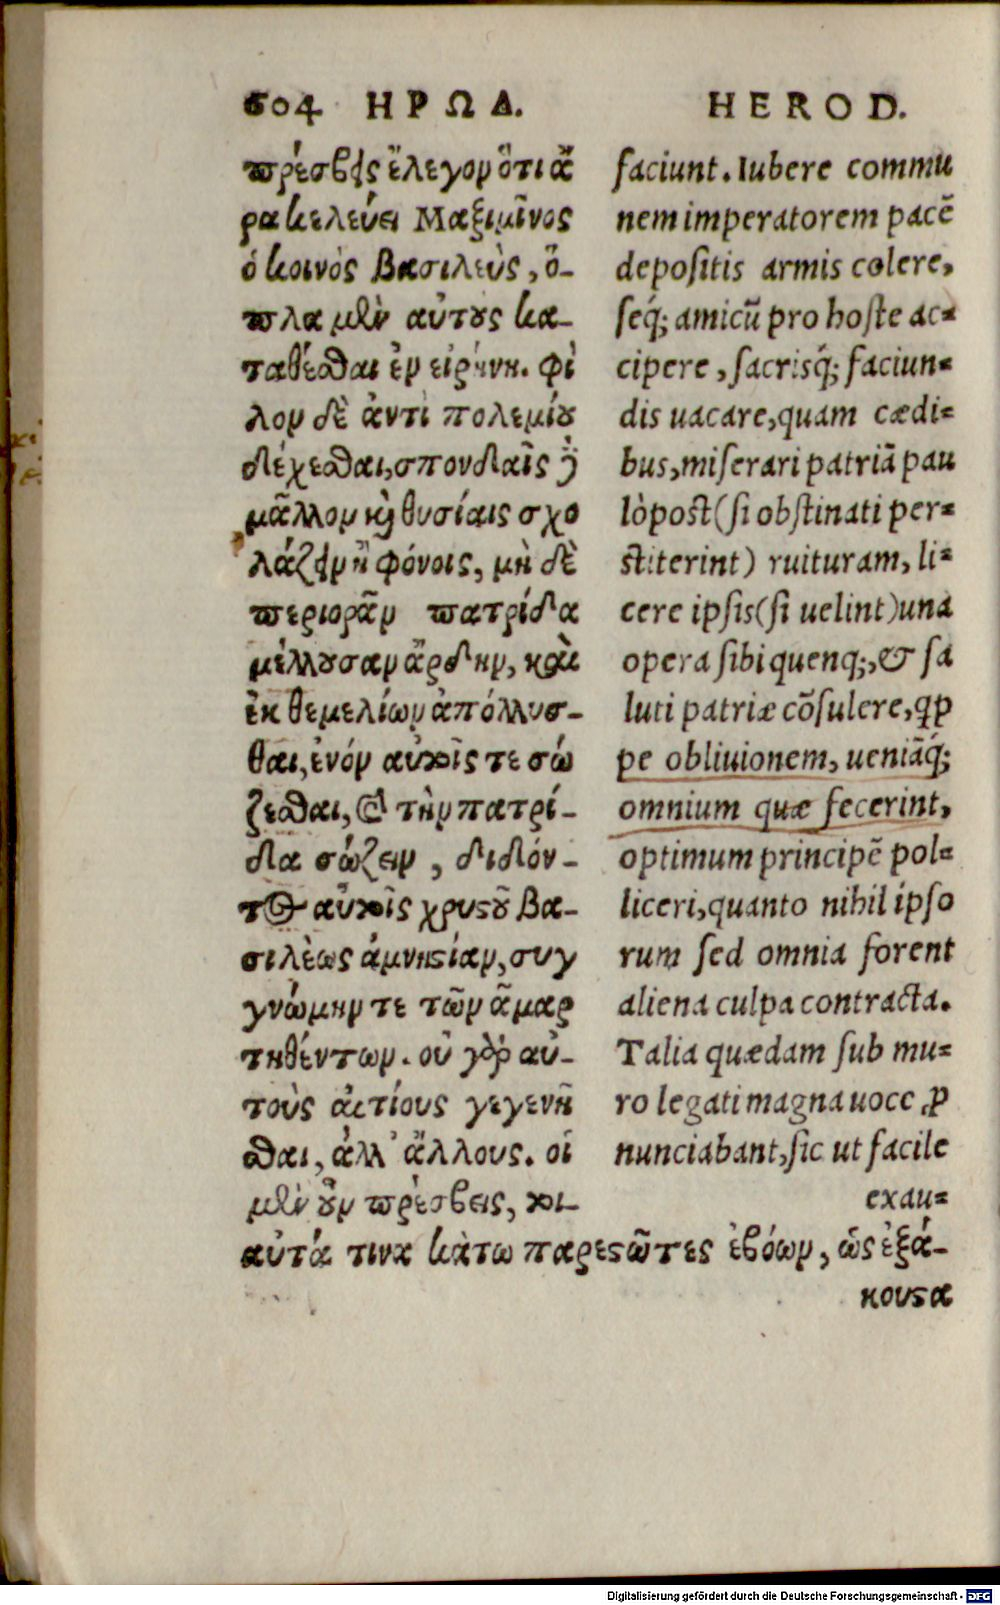 604 ΗΡΩΔ.
πρέσβεις ἔλεγον ὅτι ἄ
ρα κελεύει Μαξιμῖνος
ὁ κοινὸς βασιλεὺς, ὅ-
πλα μὲν αὐτοὺς κα-
ταθέσθαι ἐν εἰρήνῃ. φί
λον δὲ ἀντὶ πολεμίου
δέχεσθαι, σπονδαῖς
μᾶλλον καὶ θυσίαις σχο
λάζειν ἢ φόνοις, μὴ δὲ
περιορᾶν πατρίδα
μέλλουσαν ἄρδην, καὶ
ἐκ θεμελίων ἀπόλλυσ-
θαι, ἐνόν αὐτοῖς τε σώ
ζεσθαι, καὶ τὴν πατρί-
δα σώζειν, διδόν-
τος αὐτοῖς χρυστοῦ βα-
σιλέως ἀμνηστίαν, συγ
γνώμην τε τῶν ἁμαρ
τηθέντων. οὐ γὰρ αὐ-
τοὺς αἰτίους γεγενῆ
σθαι, ἀλλ' ἄλλους. οἱ
μὲν οὖν πρέσβεις, τοι-
αὐτά τινα κάτω παρεστῶτες ἐβόων, ὡς ἐξά-
κουστα
HEROD.
faciunt. Iubere commu
nem imperatorem pacē
depositis armis colere,
seq́; amicū pro hoste ac=
cipere, sacrisq́; faciun=
dis uacare, quam cædi=
bus, miserari patriā pau
lò post (si obstinati per=
stiterint) ruituram, li=
cere ipsis (si uelint) una
opera sibi quenq;, & sa
luti patriæ cōsulere, qp
pe obliuionem, ueniāq́;
omnium quæ fecerint,
optimum principē pol=
liceri, quanto nihil ipso
rum sed omnia forent
aliena culpa contracta.
Talia quædam sub mu=
ro legati magna uoce ,p
nunciabant, sic ut facile
exau=
Digitalisierung gefördert durch die Deutsche Forschungsgemeinschaft - DFG